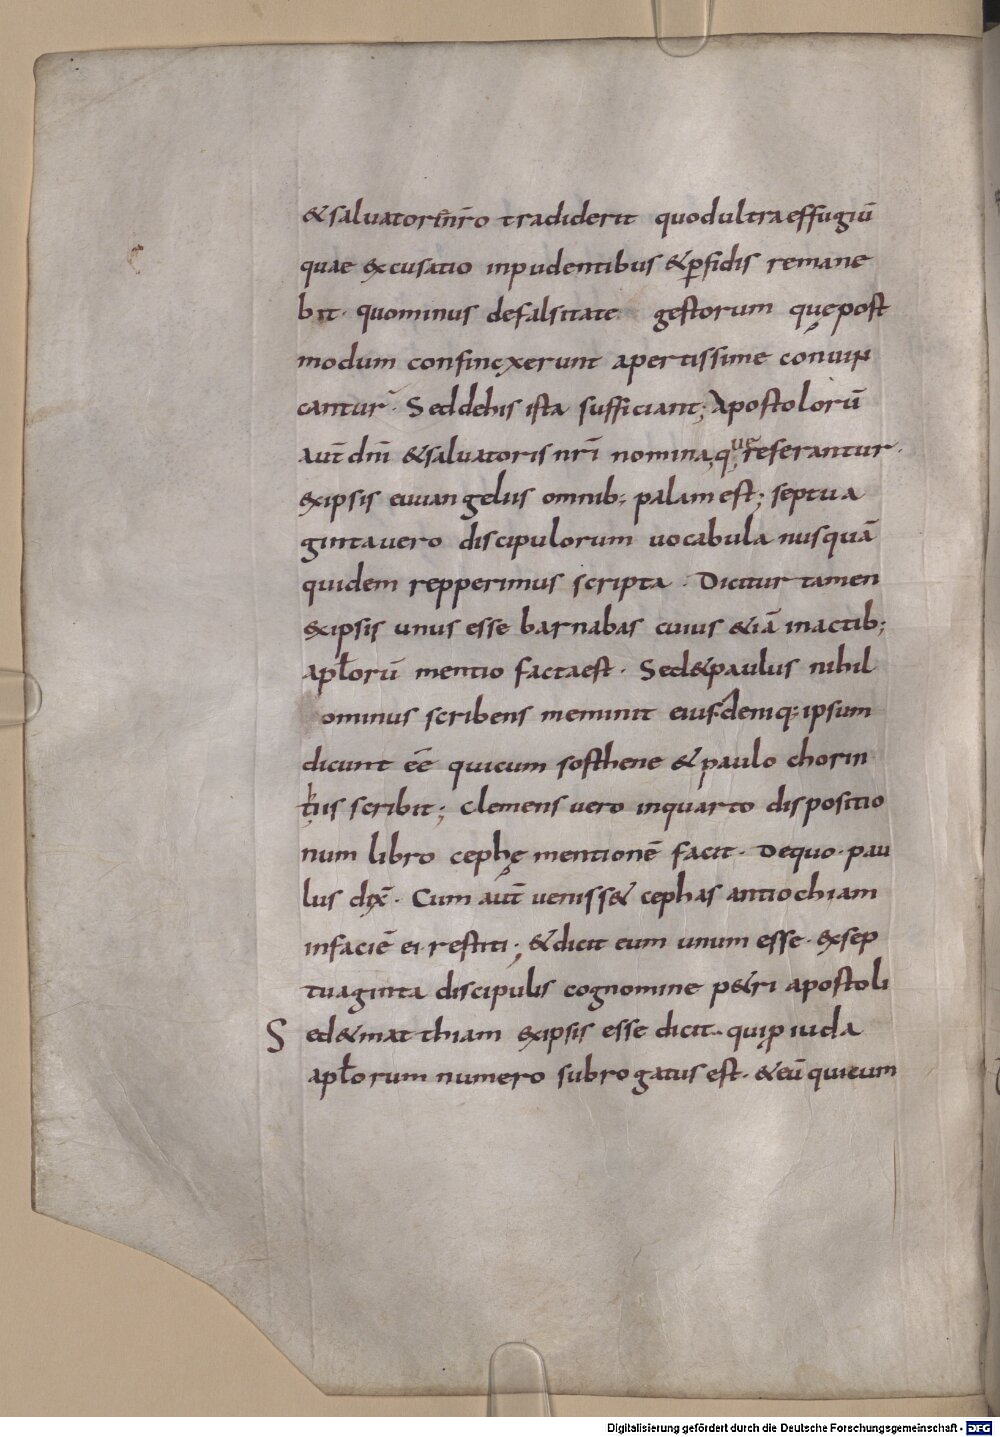 &saluatori nr̄o tradiderit quodultraeffugiū
quae excusatio inpudentibus &ꝑfidis remane
bit · quominus defalsitate gestorum quępost
modum confincxerunt apertissime conuin
cantur · Seddehis ista sufficiant; Apostolorū
aut̄ dn̄i &saluatoris nr̄i nomina, q;ue reserantur ·
exipsis euuangeliis omnib; palam est; septua
gintauero discipulorum uocabula nusquā
quidem repperimus scripta · Dicitur tamen
exipsis unus esse barnabas cuius &iā inactib;
apl̄orū mentio factaest · Sed&paulus nihil
ominus scribens meminit eius · deniq; ipsum
dicunt ēē quicum sosthene &paulo chorin
thiis scribit; Clemens uero inquarto dispositio
num libro cephę mentionē facit · Dequo · pau
lus dix̄ · Cum aut̄ ueniss& cephas antiochiam
infaciē ei · restiti; &dicit eum unum esse · exsep
tuaginta discipulis cognomine p&ri apostoli
Sed&mat thiam exipsis esse dicit · quiꝓ iuda
apl̄orum numero subrogatus est · &eū quicum
Digitalisierung gefördert durch die Deutsche Forschungsgemeinschaft - DFG